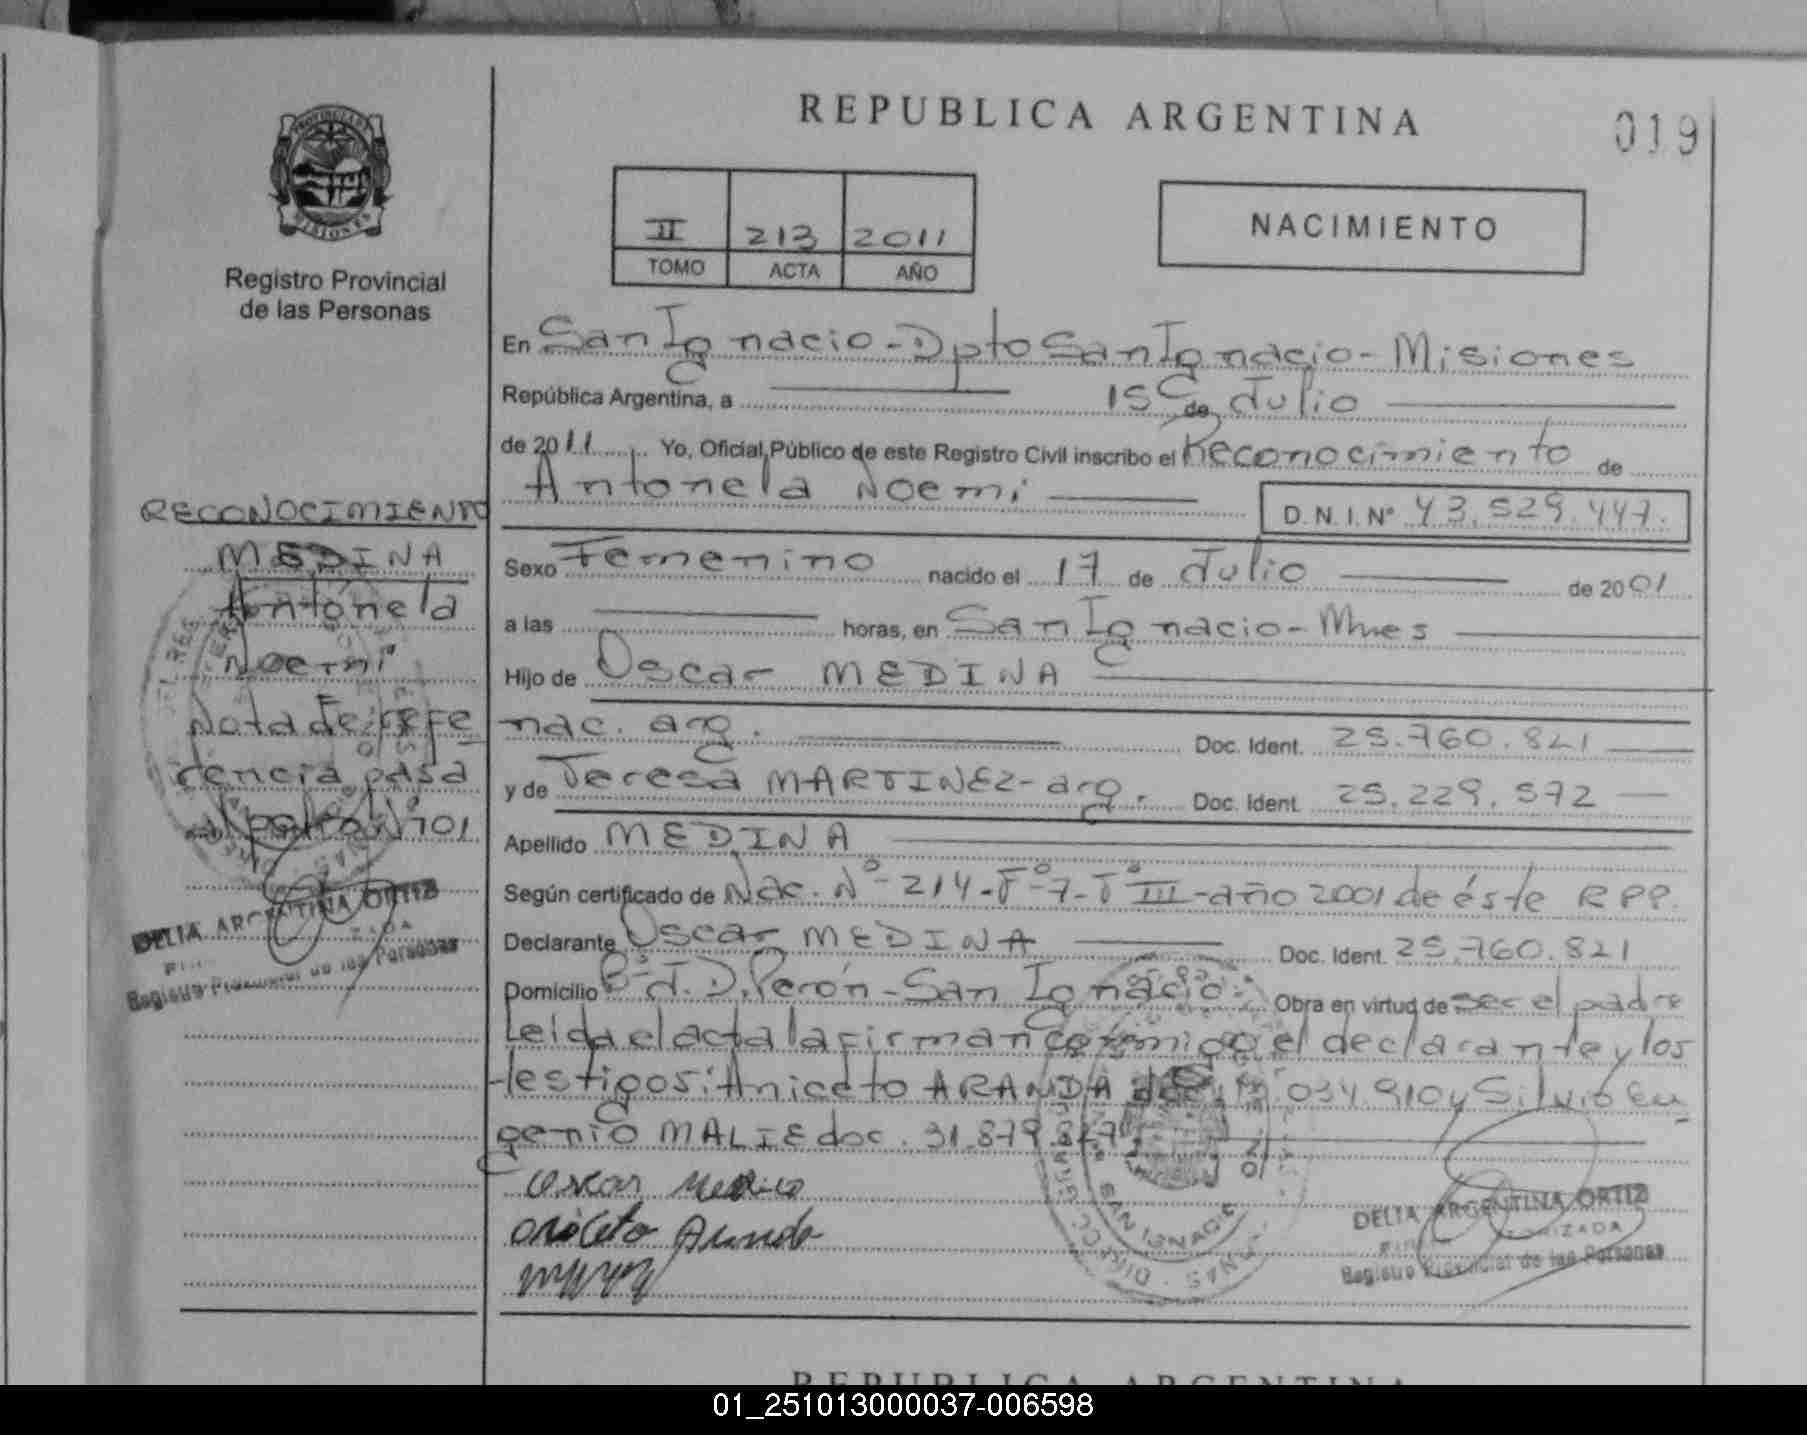 REPUBLICA ARGENTINA
019
PROVINCIA DE MISIONES
Registro Provincial
de las Personas
II 213 2011
TOMO ACTA AÑO
NACIMIENTO
En San Ignacio - Dpto San Ignacio - Misiones
República Argentina, a 15 de Julio
de 2011 Yo, Oficial Público de este Registro Civil inscribo el Reconocimiento de
Antonela Noemi
D.N.I. Nº 43.529.447.
Sexo Femenino nacido el 17 de Julio de 2001
a las horas, en San Ignacio - Mnes
Hijo de Oscar MEDINA
nac. arg. Doc. Ident. 25.760.821
y de Teresa MARTINEZ - arg. Doc. Ident. 25.229.572
Apellido MEDINA
Según certificado de Nac. Nº 214 - Fº 7 - Tº III - año 2001 de éste RPP.
Declarante Oscar MEDINA Doc. Ident. 25.760.821
Domicilio Bº J.D. Perón - San Ignacio Obra en virtud de ser el padre
Leida el acta la firman conmigo el declarante y los
testigos: Aniceto ARANDA doc. 034 910 y Silvio Eu
genio MALIE doc. 31.879.847
Oscar Medina
Aniceto Aranda
DELIA ARGENTINA ORTIZ
Registro Provincial de las Personas
SAN IGNACIO
RECONOCIMIENTO
MEDINA
Antonela
Noemi
Nota de refe
rencia pasa
Nº 701
DELIA ARGENTINA ORTIZ
Registro Provincial de las Personas
REPUBLICA ARGENTINA
01_251013000037-006598